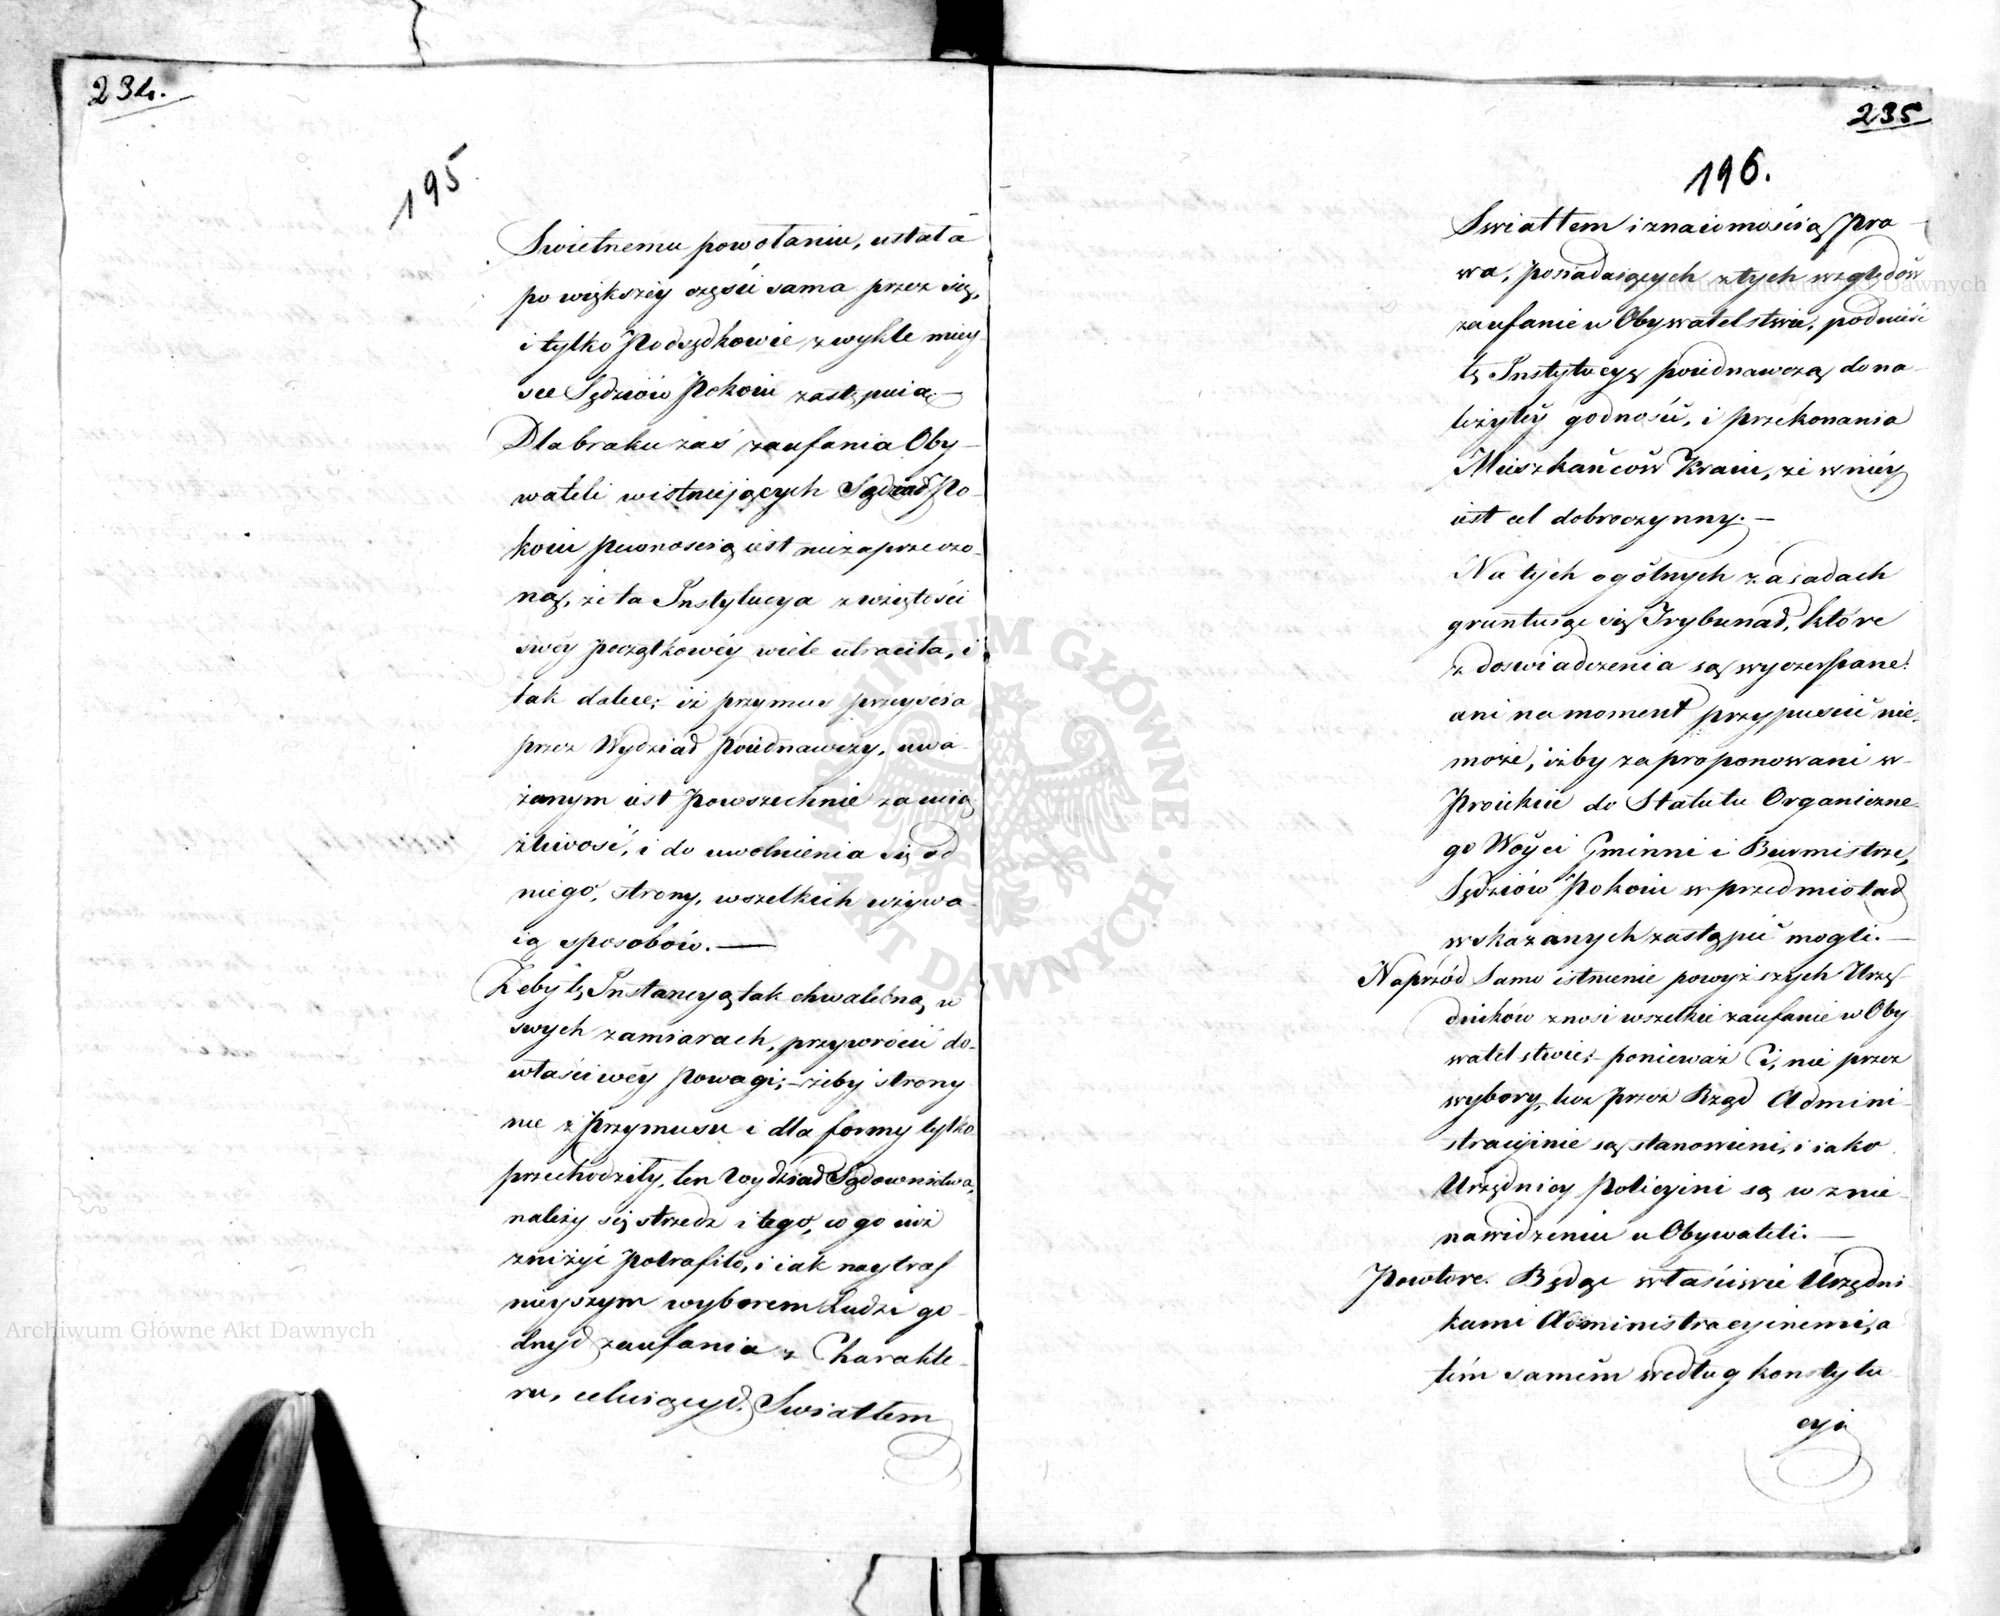 234.
195
Swietnemu powołaniu, ustała
po większéy części sama przez się,
i tylko Podsędkowie zwykle miey
sce Sędziów Pokoiu zastępuią.—
Dla braku zaś zaufania Oby-
wateli w istniejących Sądach Po-
koiu pewnością iest niezaprzeczo-
ną, że ta Instytucya z wziętości
swey początkowéy wiele utraciła, i
tak dalece, iż przymus przeyścia
przez Wydział Poiednawczy, uwa-
żanym iest powszechnie za ucią
żliwość, i do uwolnienia się od
niego, strony, wszelkich używa-
ią sposobów.—
Żeby tę Instancyą tak chwalebną w
swych zamiarach, przywrócić do-
właściwéy powagi;— żeby strony
nie z przymusu i dla formy tylko
przechodziły, ten Wydział Sądownictwa,
należy się strzedz i tego, co go iuż
zniżyć potrafiło, i iak naytraf
nieyszym wyborem Ludzi go-
dnych zaufania z Charakte-
ru, celuiących Swiatłem
235
196.
Swiatłem i znaiomością Pra-
wa, posiadaiących z tych względów
zaufanie u Obywatelstwa, podnieść
tę Instytucyą poiednawczą do na-
leżytéy godności, i przekonania
Mieszkańców Kraiu, że w niéy
iest cel dobroczynny.—
Na tych ogólnych zasadach
gruntuiąc się Trybunał, które
z doswiadczenia są wyczerpane:
ani na moment przypuścić nie-
może, iżby zaproponowani w-
Proiekcie do Statutu Organiczne-
go Woyci Gminni i Burmistrze,
Sędziów Pokoiu w przedmiotach
wskazanych zastąpić mogli.—
Naprzód Samo istnienie powyższych Urzę-
dników znosi wszelkie zaufanie w Oby
watelstwie;— ponieważ Ci, nie przez
wybory, lecz przez Rząd Admini-
stracyinie są stanowieni, i iako
Urzędnicy Policyini są w znie-
nawidzeniu u Obywateli.—
Powtore. Będąc właściwie Urzędni
kami Administracyinemi, a
tém samém według konstytu
cyi
Archiwum Główne Akt Dawnych
Archiwum Główne Akt Dawnych
ARCHIWUM GŁÓWNE AKT DAWNYCH